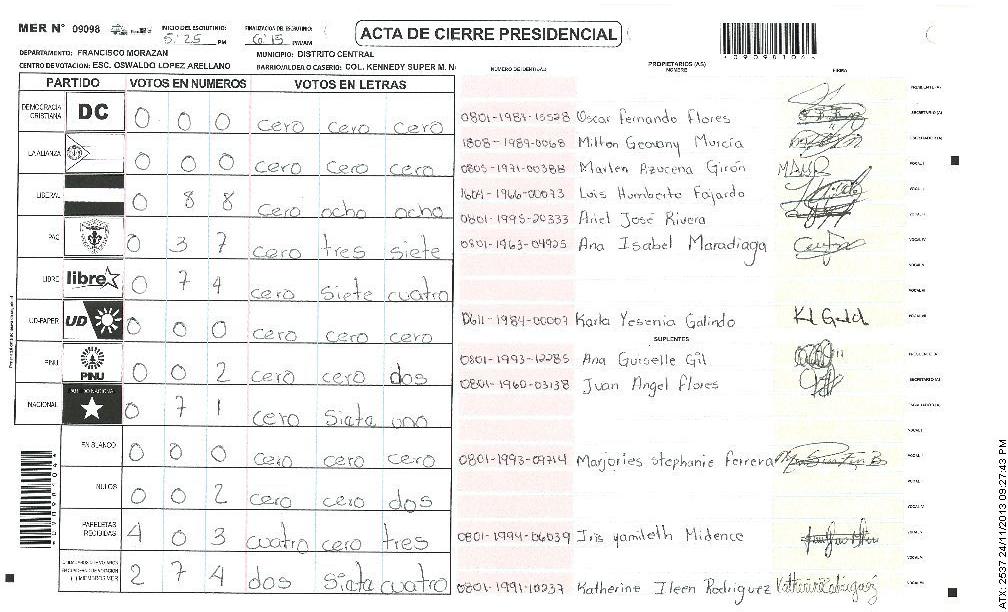 MER N° 09098
INICIO DEL ESCRUTINIO: 5:25 PM
FINALIZACION DEL ESCRUTINIO: 6:15 PM/AM
ACTA DE CIERRE PRESIDENCIAL
DEPARTAMENTO: FRANCISCO MORAZAN
MUNICIPIO: DISTRITO CENTRAL
CENTRO DE VOTACION: ESC. OSWALDO LOPEZ ARELLANO
BARRIO/ALDEA O CASERIO: COL. KENNEDY SUPER M. N
PARTIDO VOTOS EN NUMEROS VOTOS EN LETRAS
DEMOCRACIA CRISTIANA DC 0 0 0 cero cero cero
LA ALIANZA 0 0 0 cero cero cero
LIBERAL 0 8 8 cero ocho ocho
PAC 0 3 7 cero tres siete
LIBRE libre 0 7 4 cero siete cuatro
UD-FAPER UD 0 0 0 cero cero cero
PINU PINU 0 0 2 cero cero dos
NACIONAL PARTIDO NACIONAL 0 7 1 cero siete uno
EN BLANCO 0 0 0 cero cero cero
NULOS 0 0 2 cero cero dos
PAPELETAS RECIBIDAS 4 0 3 cuatro cero tres
2 7 4 dos siete cuatro
NUMERO DE IDENTIDAD
PROPIETARIOS (AS)
NOMBRE
FIRMA
Oscar Fernando Flores
1808-1989-0068 Milton Geovany Murcia
0805-1971-00388 Marlen Azucena Girón
Luis Humberto Fajardo
0801-1995-20333 Ariel José Rivera
0801-1963-04925 Ana Isabel Maradiaga
0611-1984-00007 Karla Yesenia Galindo
SUPLENTES
0801-1993-12285 Ana Guiselle Gil
0801-1960-03138 Juan Angel Flores
0801-1993-09714 Marjories Stephanie Ferrera
0801-1994-06039 Iris Yamileth Midence
0801-1991-10237 Katherine Ileen Rodriguez
ATX. 2537 24/11/2013 09:27:43 PM